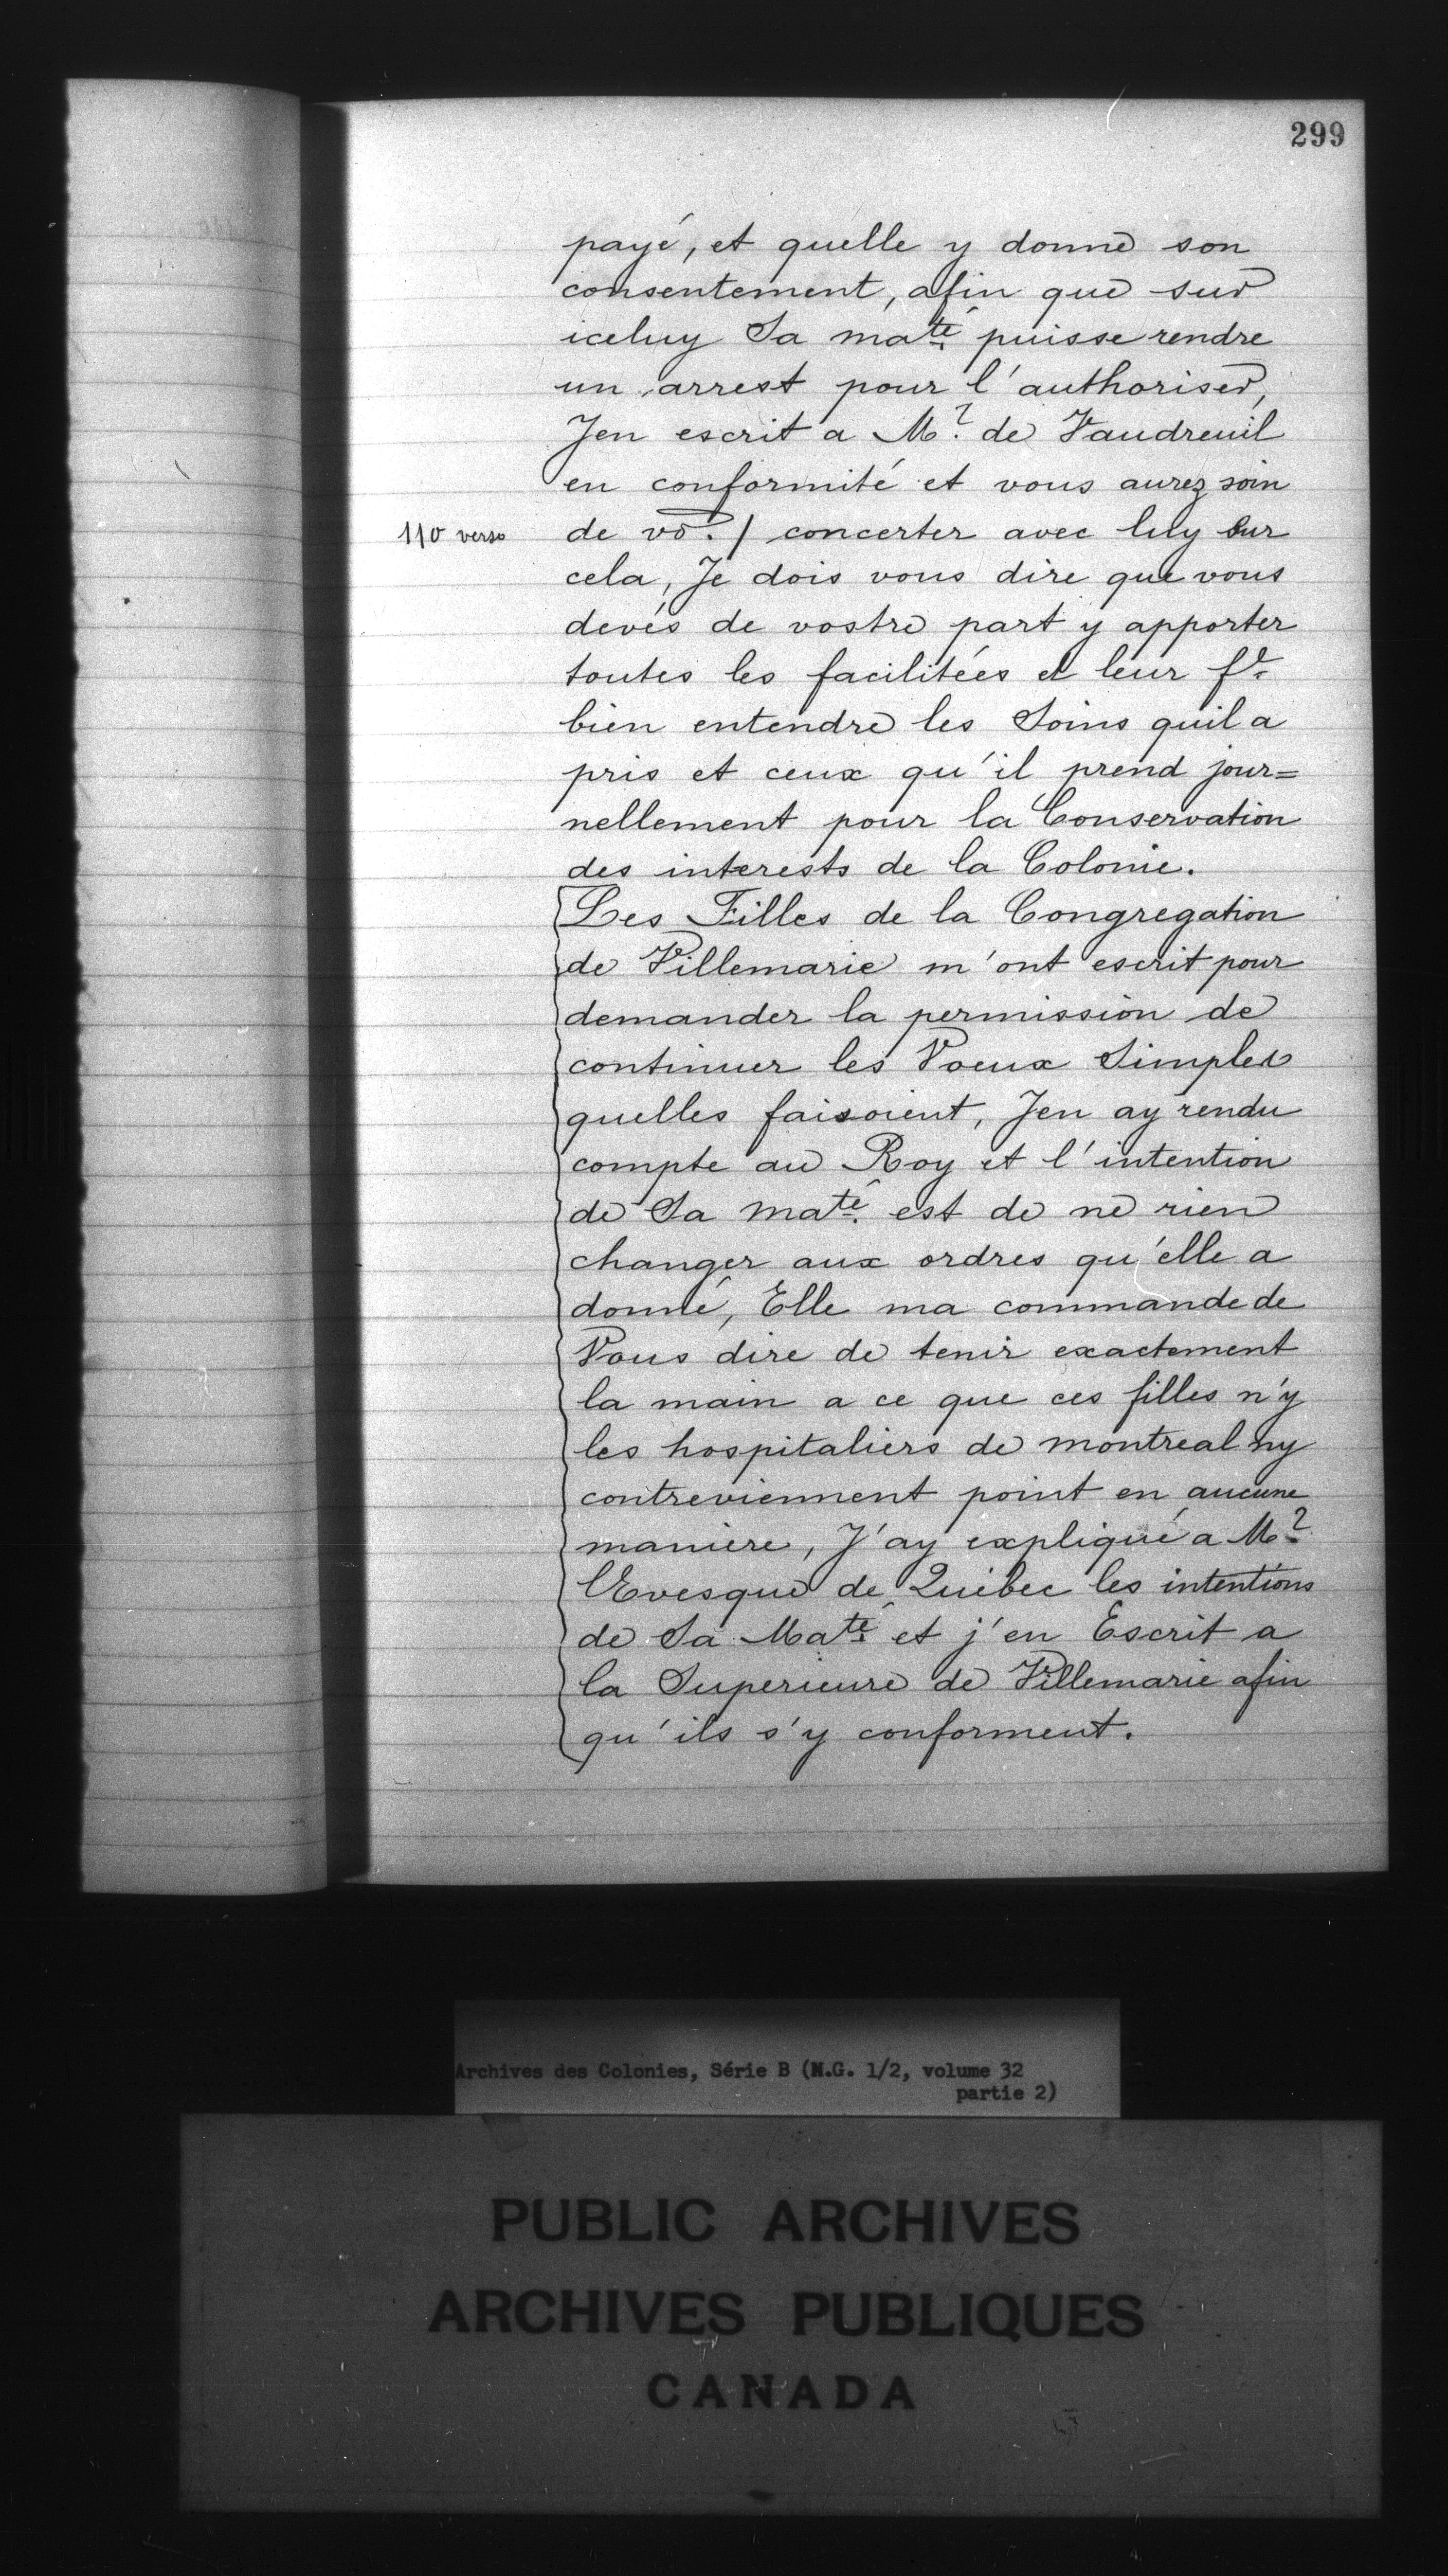 299
payé, et quelle y donne son
consentement, afin que sur
iceluy Sa maté puisse rendre
un arrest pour l'authoriser,
Jen escrit a Mr. de Vaudreuil
en conformité et vous aurez soin
110 verso
de vo. / concerter avec luy sur
cela, Je dois vous dire que vous
devés de vostre part y apporter
toutes les facilitées et leur fe.
bien entendre les Soins quil a
pris et ceux qu'il prend jour=
nellement pour la Conservation
des interests de la Colonie.
Les Filles de la Congregation
de Villemarie m'ont escrit pour
demander la permission de
continuer les Voeux Simples
quelles faisoient, Jen ay rendu
compte au Roy et l'intention
de Sa maté. est de ne rien
changer aux ordres qu'elle a
donné, Elle ma commande de
Vous dire de tenir exactement
la main a ce que ces filles n'y
les hospitaliers de montreal ny
contreviennent point en aucune
maniere, J'ay expliqué a Mr.
lEvesque de Québec les intentions
de Sa Maté et j'en Escrit a
la Superieure de Villemarie afin
qu'ils s'y conforment.
Archives des Colonies, Série B (M.G. 1/2, volume 32
partie 2)
PUBLIC ARCHIVES
ARCHIVES PUBLIQUES
CANADA